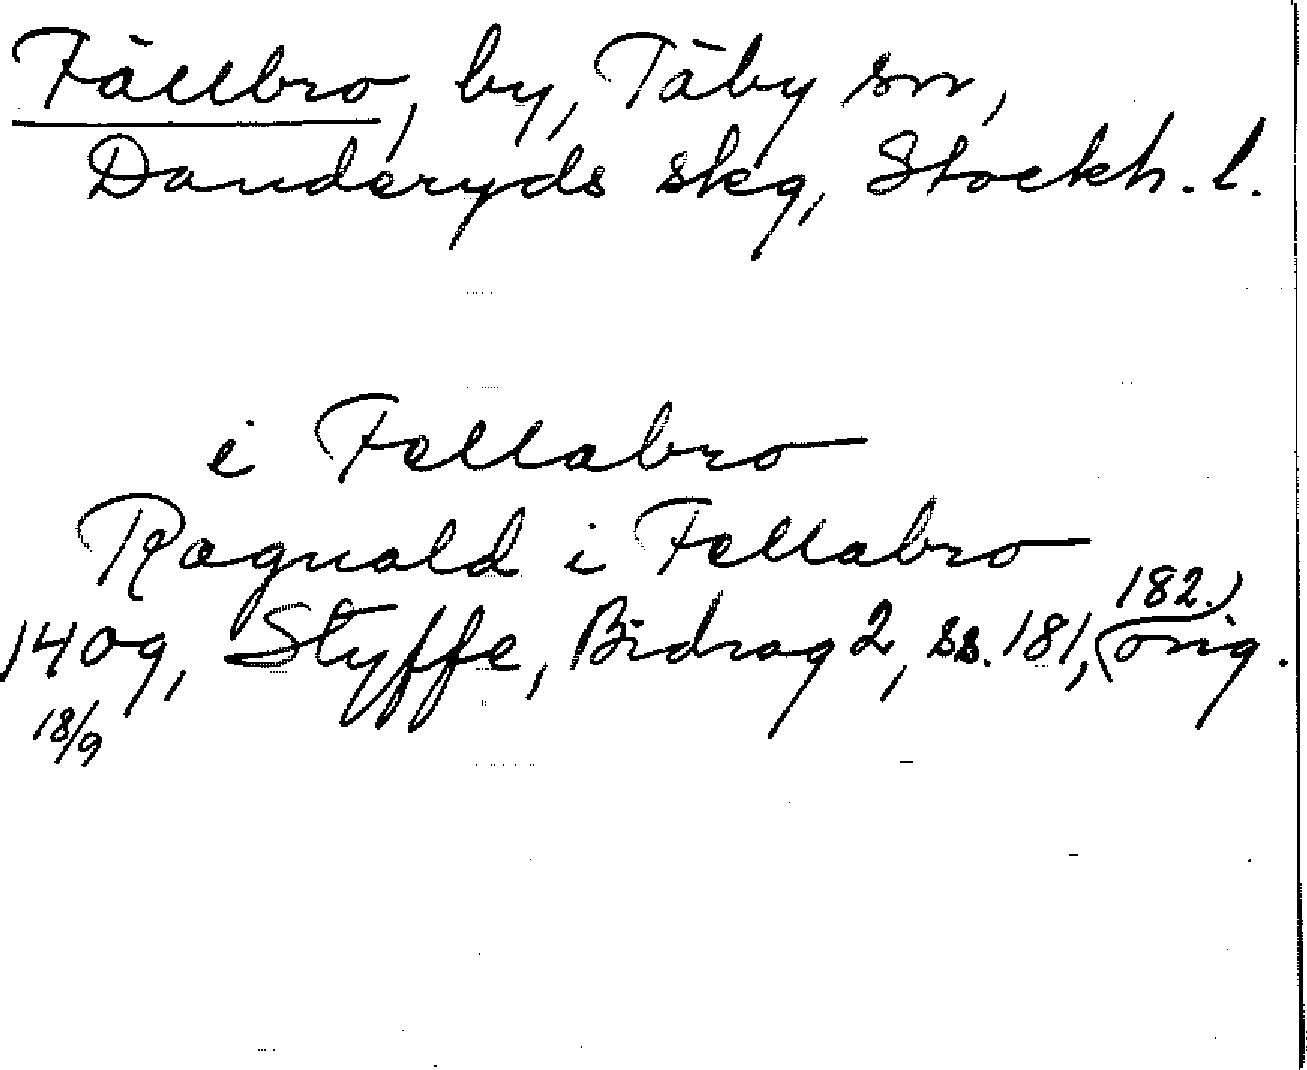 Fällbro, by, Täby sn,
Danderyds skg, Stockh. l.
i Fellabro
Ragnald i Fellabro
1409, Styffe, Bidrag 2, ss. 181, 182. orig.
18/9